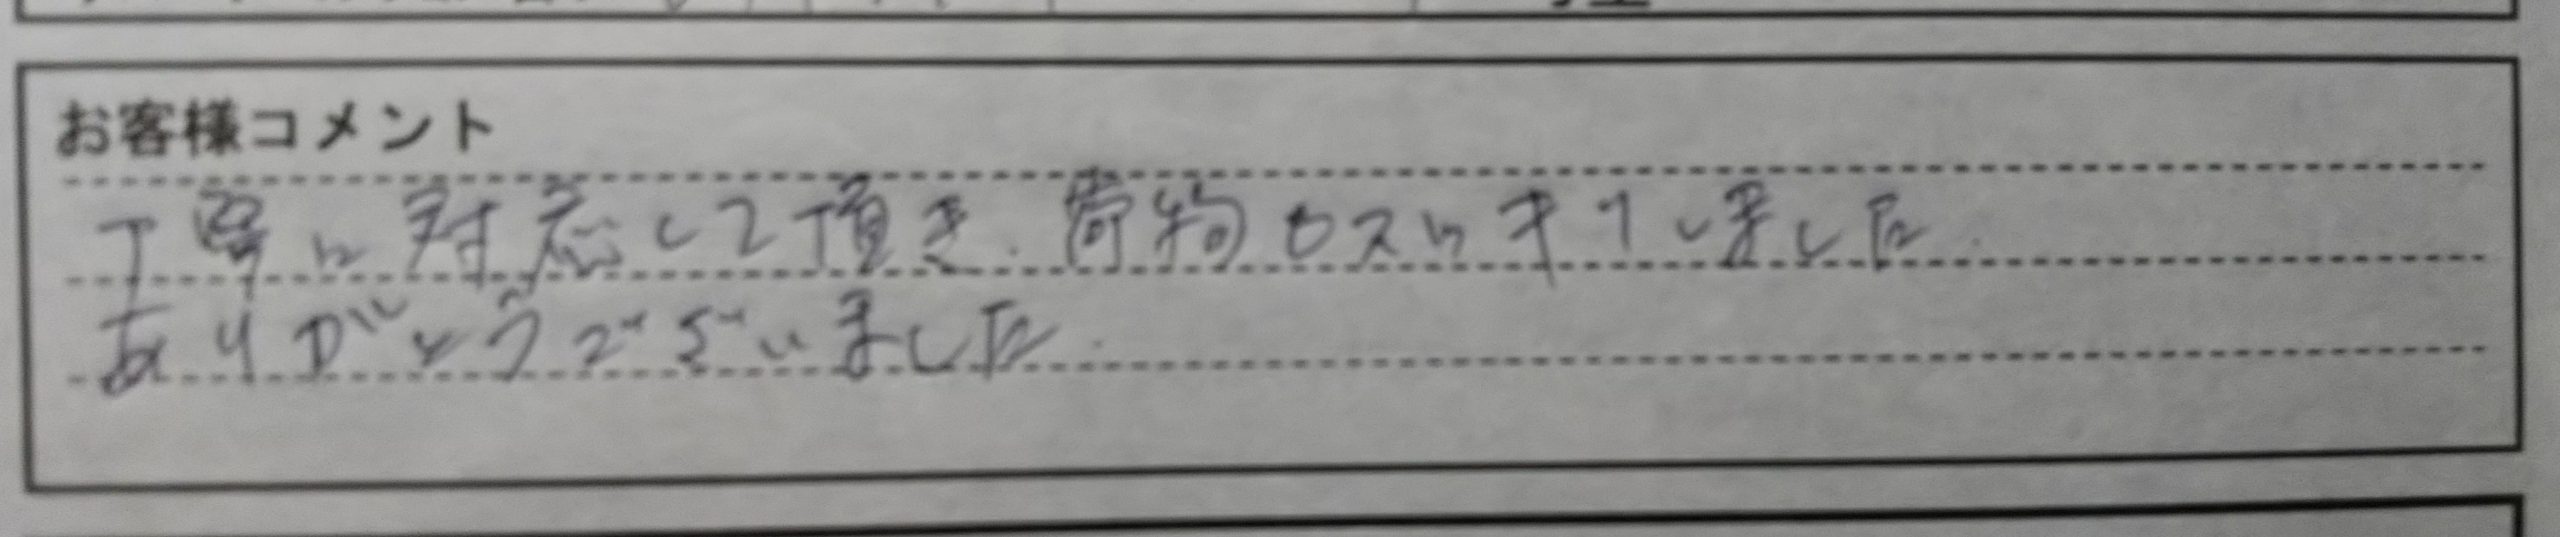 お客様コメント
丁寧に対応して頂き、荷物もスッキリしました
ありがとうございました。